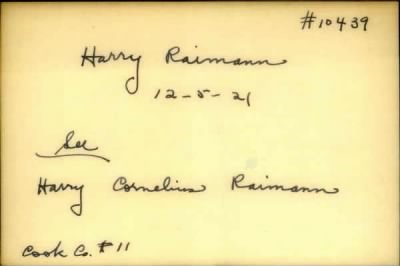 #10439
Harry Raimann
12-5-21
See
Harry Cornelius Raimann
Cook Co. #11